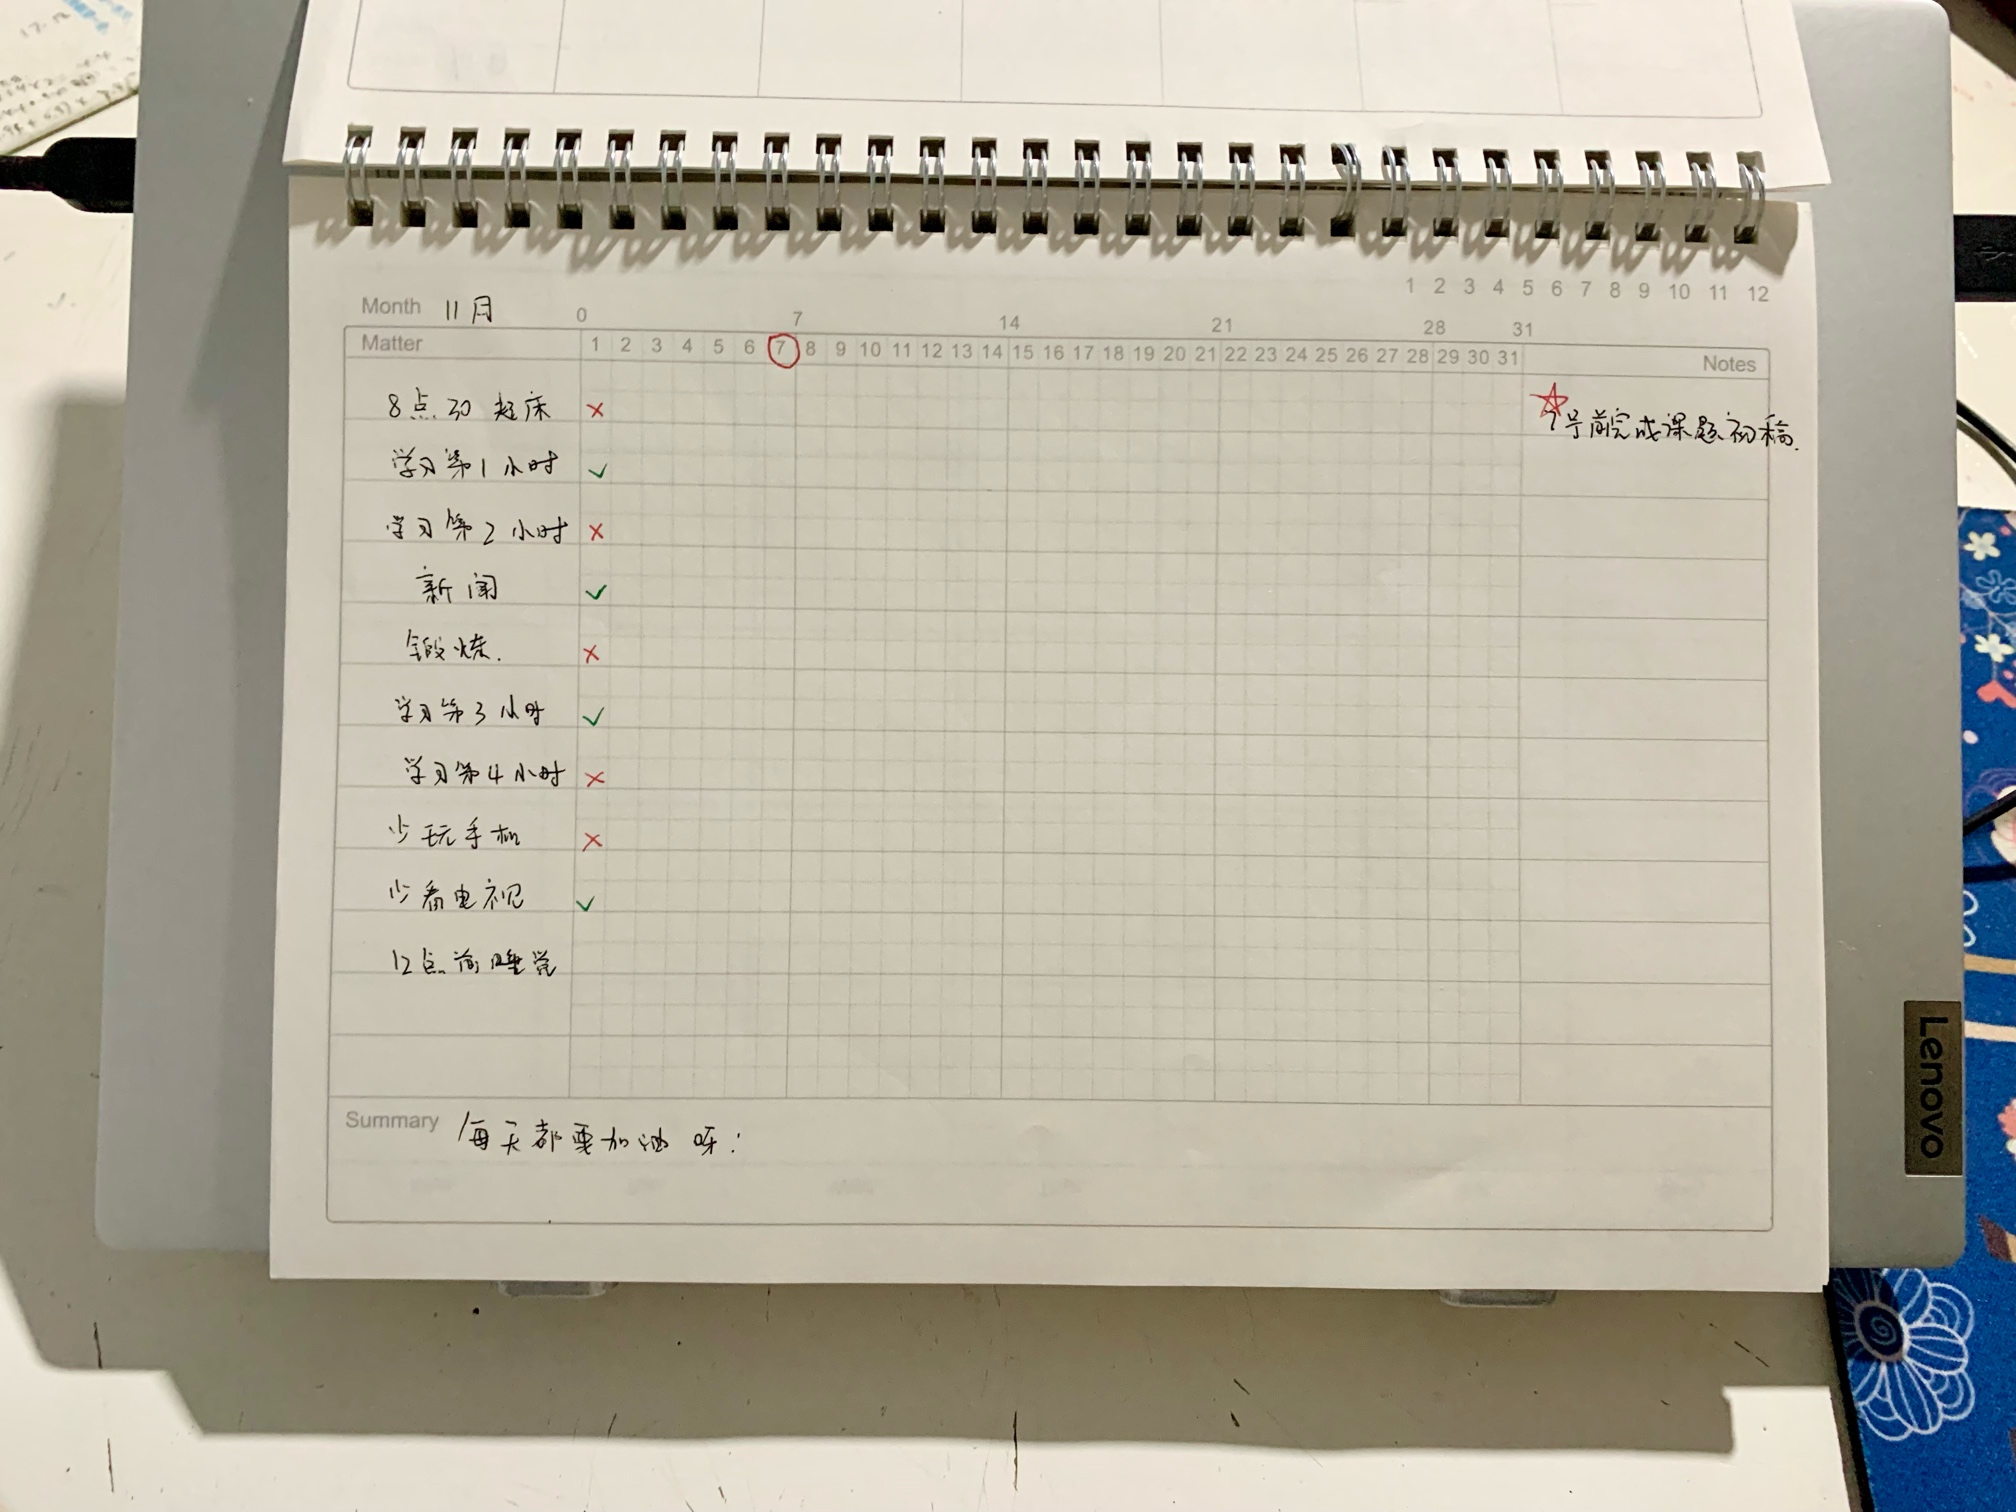 1 2 3 4 5 6 7 8 9 10 11 12
Month 11月
0 7 14 21 28 31
Matter 1 2 3 4 5 6 7 8 9 10 11 12 13 14 15 16 17 18 19 20 21 22 23 24 25 26 27 28 29 30 31 Notes
8点30 起床 ×
7号前完成课题初稿.
学习第1小时 ✓
学习第2小时 ×
新闻 ✓
锻炼. ×
学习第3小时 ✓
学习第4小时 ×
少玩手机 ×
少看电视 ✓
12点前睡觉
Summary 每天都要加油呀!
Lenovo